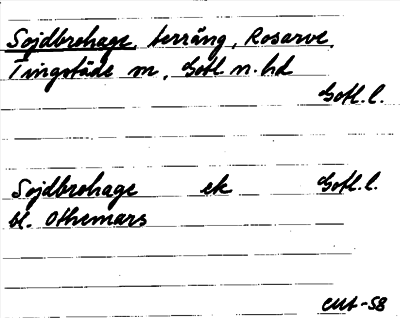 Sojdbrohage, terräng, Rosarve,
Tingstäde sn, Gotl. n. hd
Gotl. l.
Sojdbrohage ek Gotl. l.
bl. Othemars